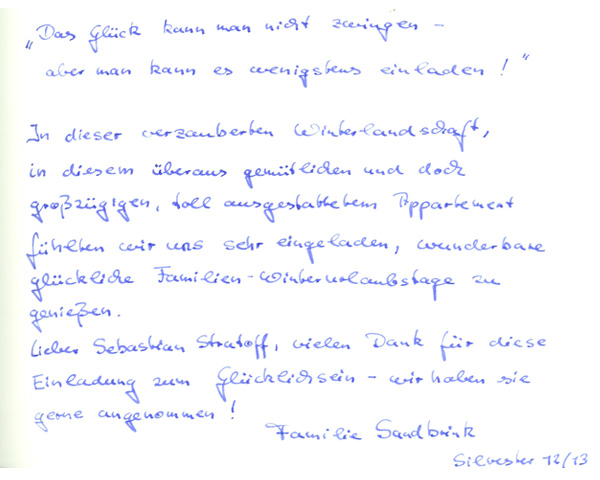 „Das Glück kann man nicht zwingen –
aber man kann es wenigstens einladen!"
In dieser verzauberten Winterlandschaft,
in diesem überaus gemütlichen und doch
großzügigen, toll ausgestattetem Appartement
fühlten wir uns sehr eingeladen, wunderbare
glückliche Familien-Winterurlaubstage zu
genießen.
Lieber Sebastian Stratoff, vielen Dank für diese
Einladung zum Glücklichsein – wir haben sie
gerne angenommen!
Familie Sandbrink
Silvester 12/13